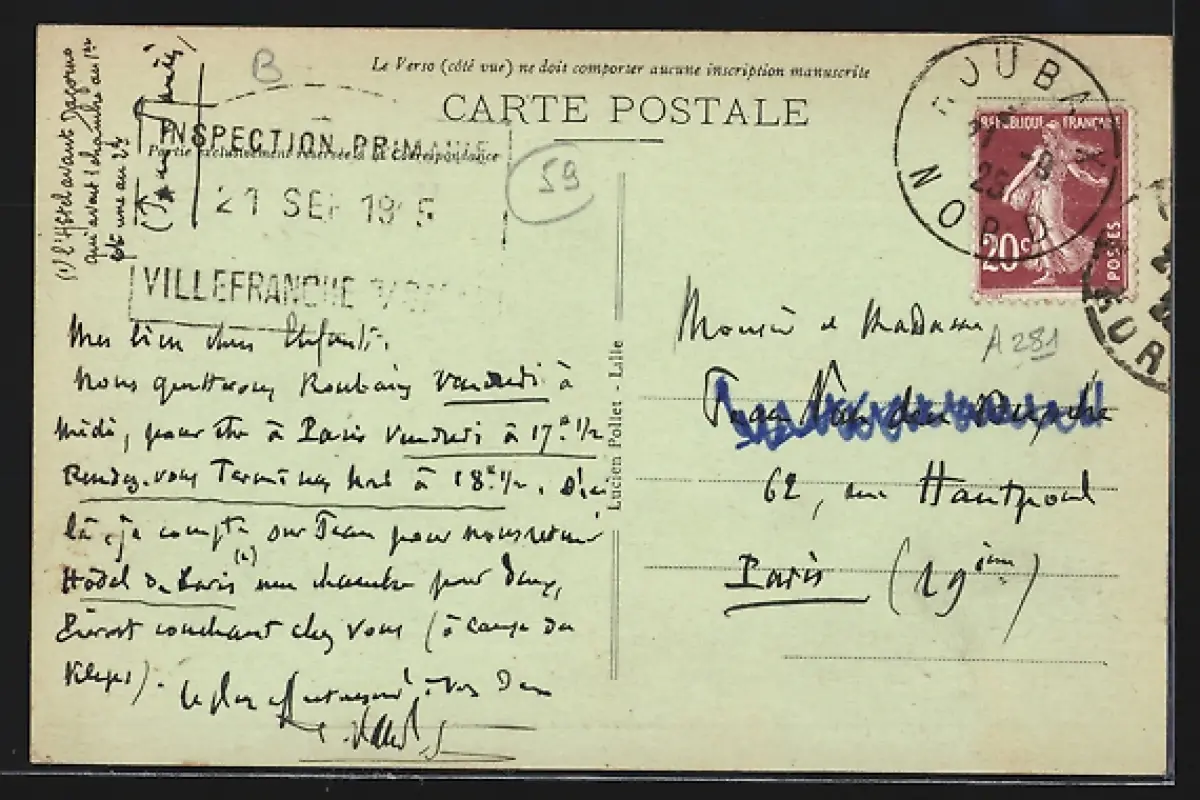 Le Verso (côté vue) ne doit comporter aucune inscription manuscrite
CARTE POSTALE
Partie exclusivement réservée à la correspondance
B
INSPECTION PRIMAIRE
21 SEP 19 5
VILLEFRANCHE
59
ROUBAIX
25
NORD
REPUBLIQUE FRANÇAISE
20c
POSTES
NORD
A 281
(1) l'Hôtel avant
qu'avant 1 chambre au 1er
une au 2d
Mes bien chers Enfants,
Nous quitterons Roubaix Vendredi à
Midi, pour être à Paris Vendredi à 17h 1/2
Rendez-vous Terminus Nord à 18h 1/2. D'ici
là, je compte sur Jean pour nous retenir
Hôtel de Paris (1) une chambre pour deux,
couchant chez vous (à cause du
Le plus affectueusement à vous deux
Lucien Pollet - Lille
Monsieur et Madame
62, rue Hautpoul
Paris (19ième)